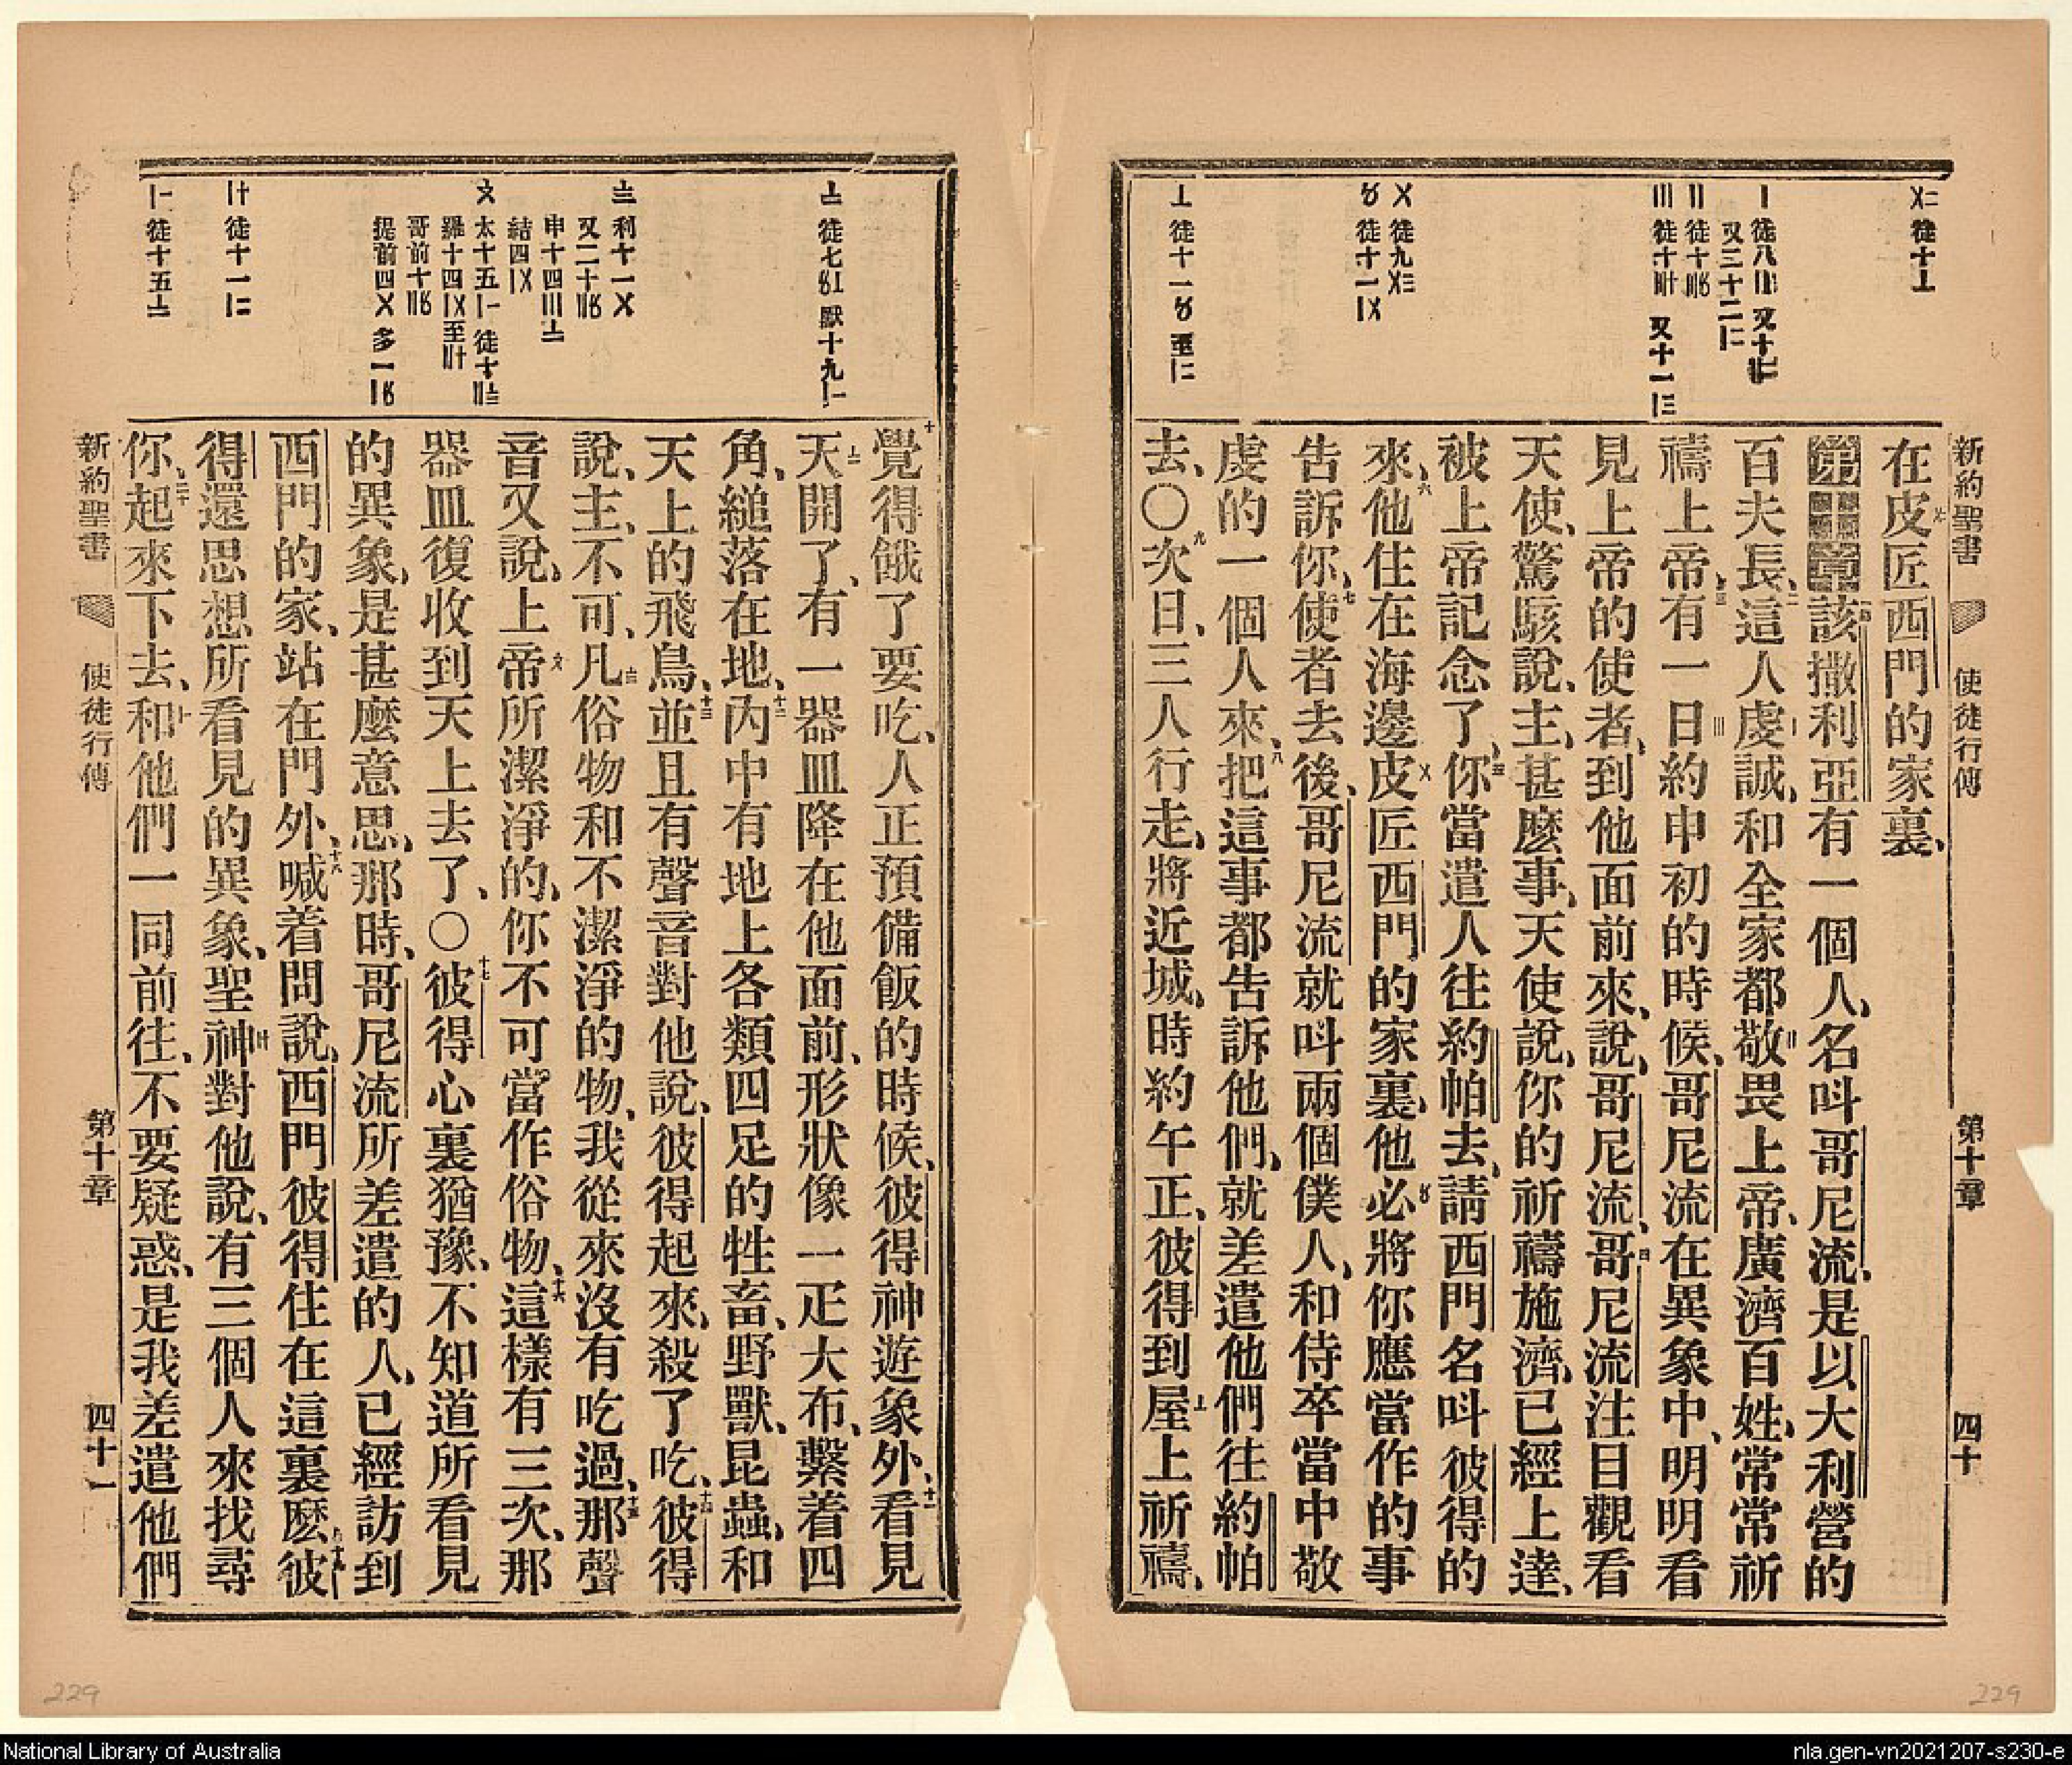 新約聖書 使徒行傳 第十章 四十
在皮匠西門的家裏、
第十章該撒利亞有一個人、名呌哥尼流、是以大利營的
百夫長、這人虔誠、和全家都敬畏上帝、廣濟百姓、常常祈
禱上帝、有一日約申初的時候、哥尼流在異象中、明明看
見上帝的使者、到他面前來、說、哥尼流、哥尼流注目觀看
天使、驚駭說、主、甚麼事、天使說、你的祈禱施濟、已經上達、
被上帝記念了、你當遣人往約帕去、請西門名呌彼得的
來、他住在海邊皮匠西門的家裏、他必將你應當作的事
告訴你、使者去後、哥尼流就呌兩個僕人、和侍卒當中敬
虔的一個人來、把這事都告訴他們、就差遣他們往約帕
去、〇次日、三人行走、將近城、時約午正、彼得到屋上祈禱、
覺得餓了要吃、人正預備飯的時候、彼得神遊象外、看見
天開了、有一器皿降在他面前、形狀像一疋大布、繫着四
角、縋落在地、內中有地上各類四足的牲畜、野獸、昆蟲、和
天上的飛鳥、並且有聲音對他說、彼得起來、殺了吃、彼得
說、主、不可、凡俗物和不潔淨的物、我從來沒有吃過、那聲
音又說、上帝所潔淨的、你不可當作俗物、這樣有三次、那
器皿復收到天上去了、〇彼得心裏猶豫、不知道所看見
的異象、是甚麼意思、那時、哥尼流所差遣的人、已經訪到
西門的家、站在門外、喊着問說、西門彼得住在這裏麼、彼
得還思想所看見的異象、聖神對他說、有三個人來找尋
你、起來下去、和他們一同前往、不要疑惑、是我差遣他們
新約聖書 使徒行傳 第十章 四十一
229
229
National Library of Australia
nla.gen-vn2021207-s230-e